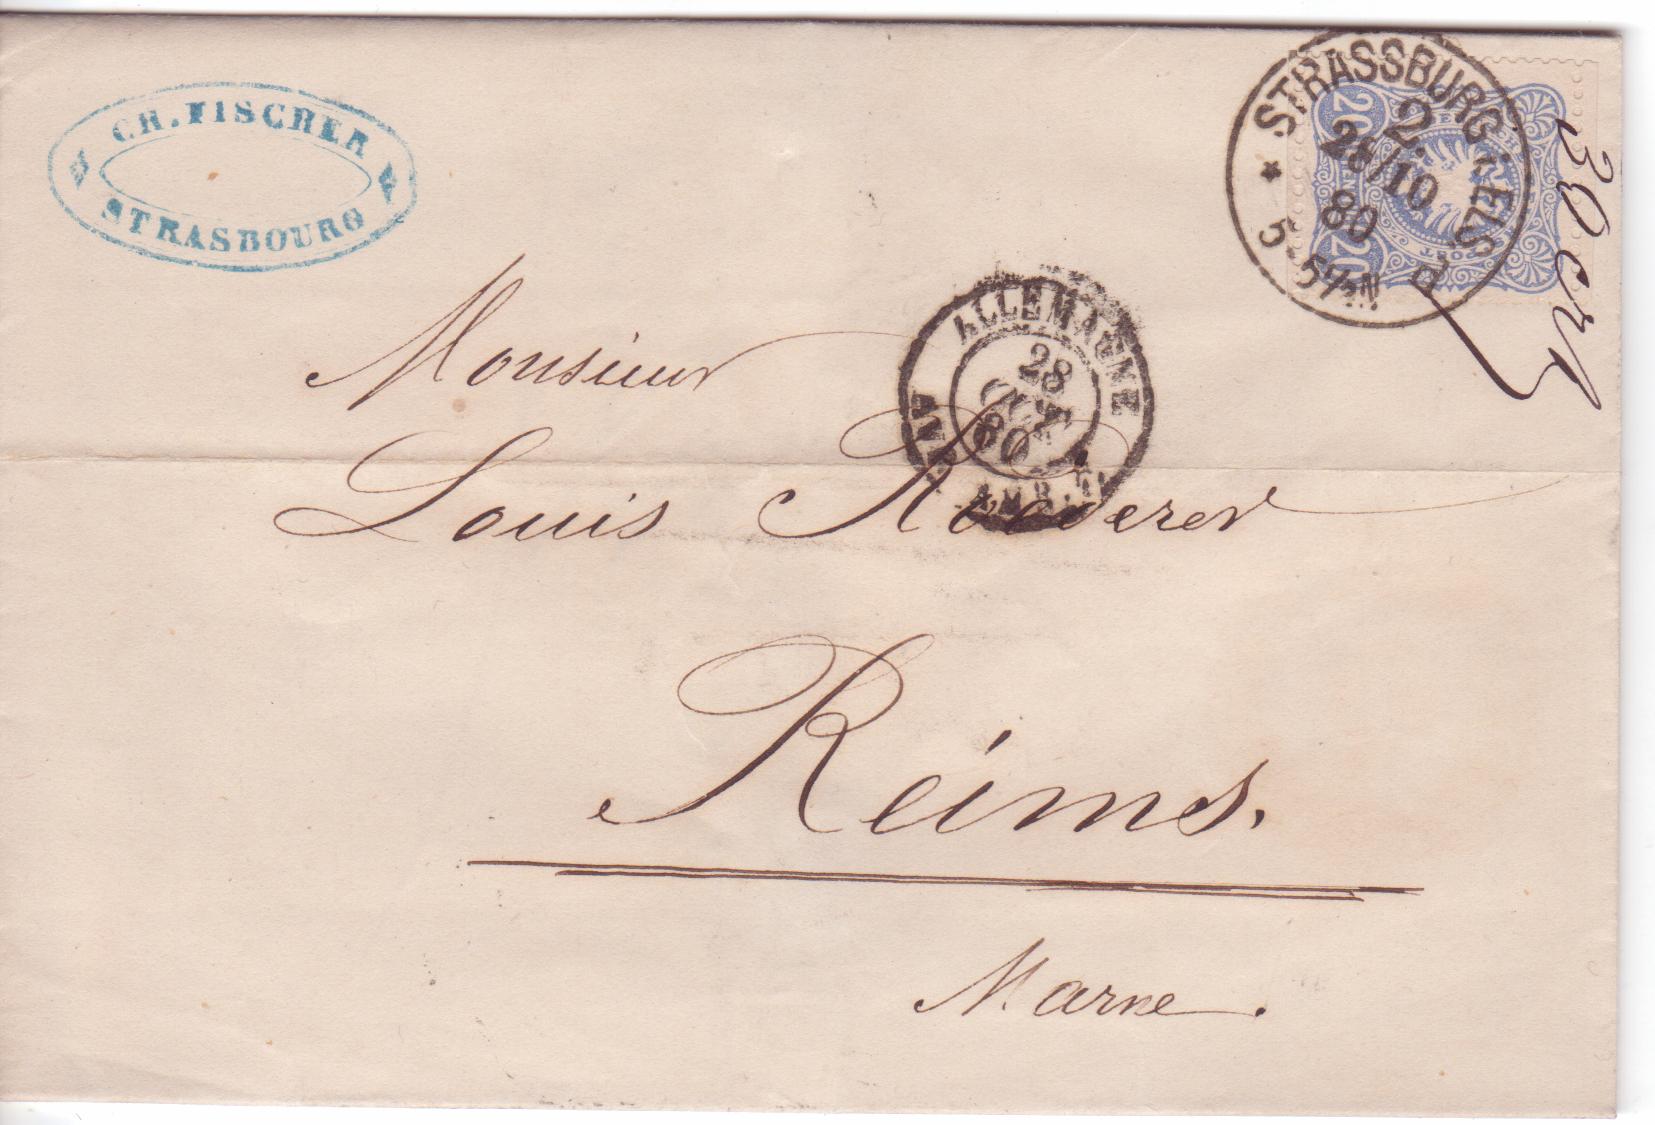 CH. FISCHER
STRASBOURG
STRASSBURG i. ELS
2.
28/10
80
5-5½N
d
20
20
30 cts
ALLEMAGNE
28
OCT
80
Monsieur
Louis Roederer
Reims.
Marne.